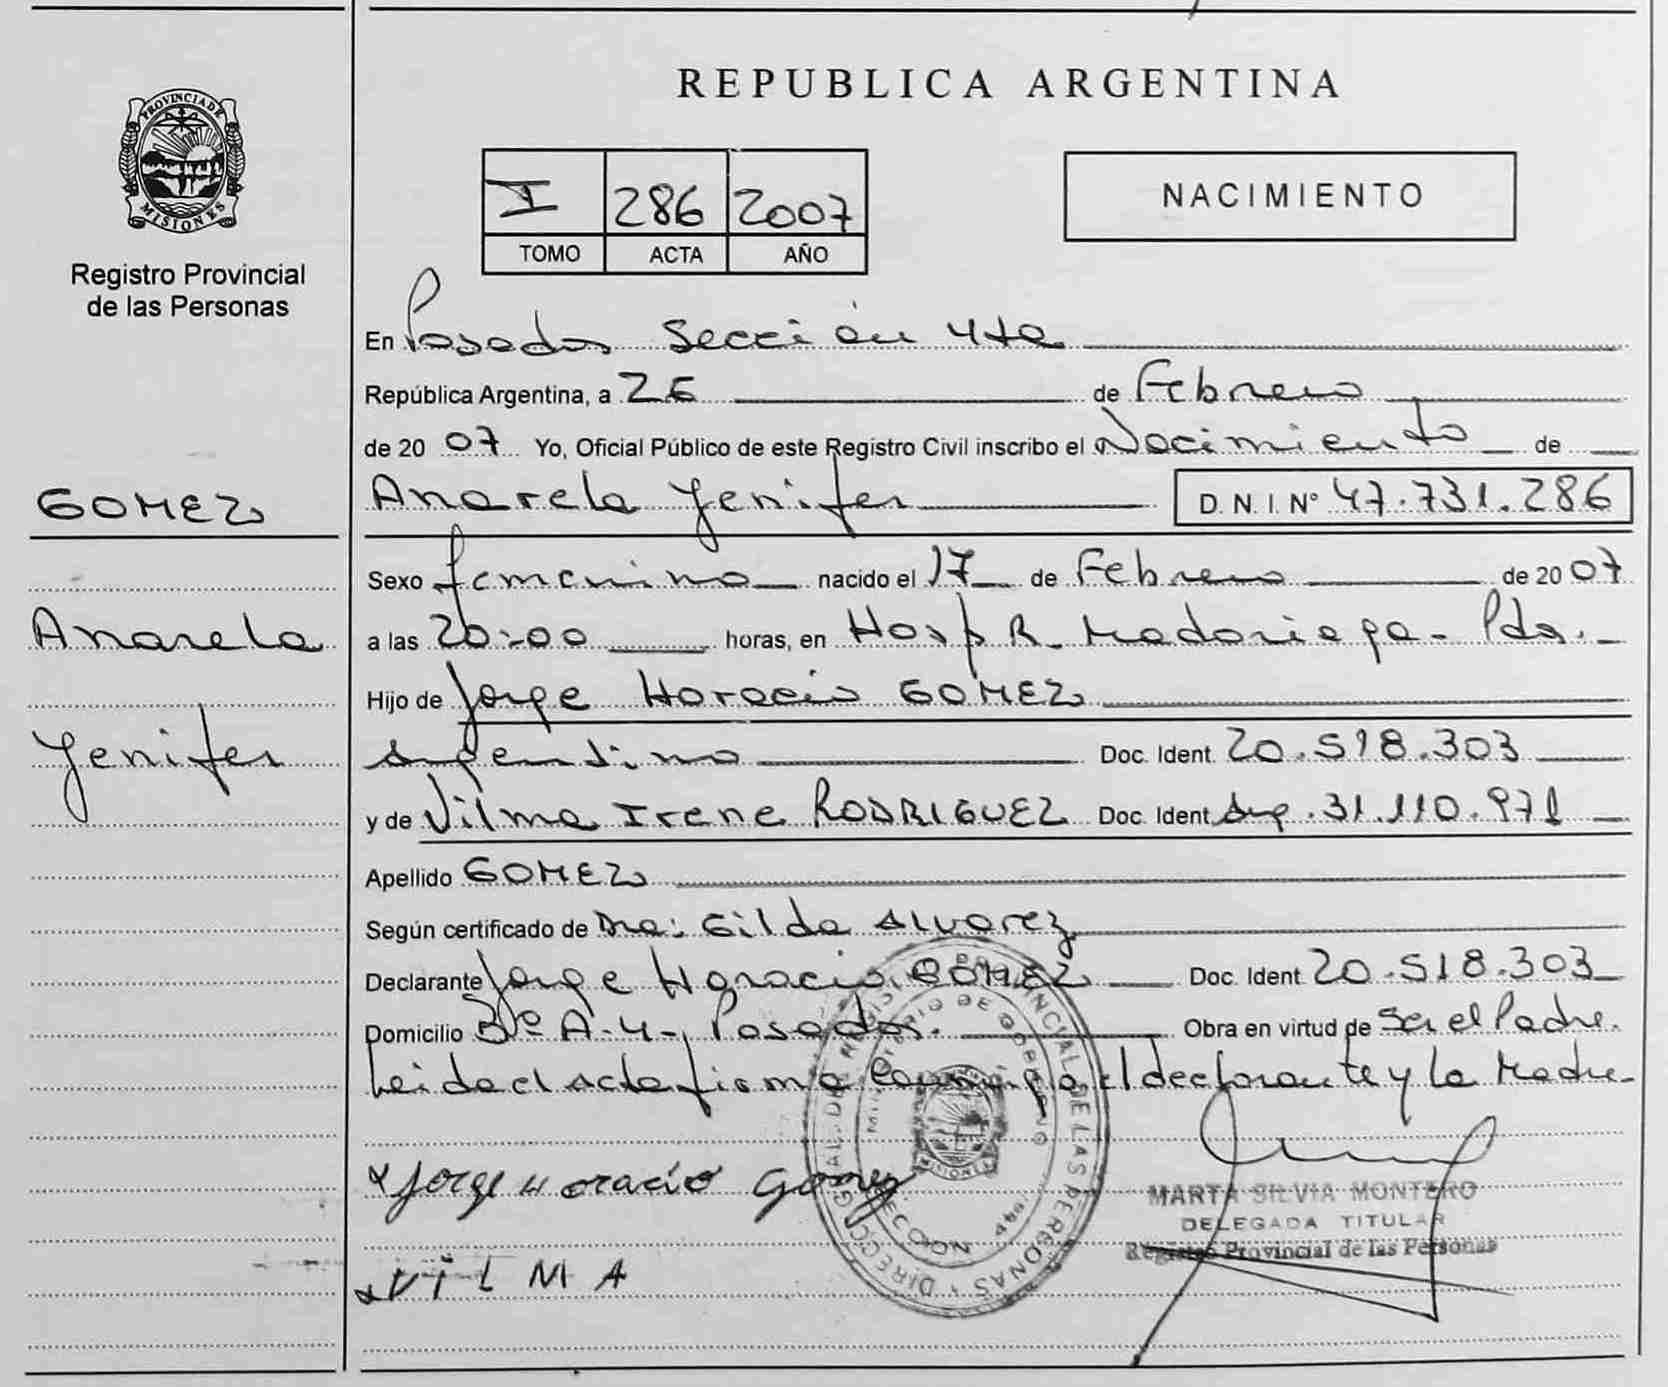 REPUBLICA ARGENTINA
PROVINCIA DE
MISIONES
Registro Provincial
de las Personas
I 286 2007
TOMO ACTA AÑO
NACIMIENTO
En Posadas Sección 4ta
República Argentina, a 26 de Febrero
de 20 07 Yo, Oficial Público de este Registro Civil inscribo el Nacimiento de
GOMEZ
Anarela Yenifer D. N. I. Nº 47.731.286
Sexo femenino nacido el 17 de Febrero de 20 07
Anarela
a las 20:00 horas, en Hosp R. Madariaga - Pdas.
Hijo de Jorge Horacio GOMEZ
Yenifer
argentino Doc. Ident. 20.518.303
y de Vilma Irene RODRIGUEZ Doc. Ident. Arg. 31.110.971
Apellido GOMEZ
Según certificado de Gilda Alvarez
Declarante Jorge Horacio GOMEZ Doc. Ident. 20.518.303
Domicilio A-4-, Posadas. Obra en virtud de ser el Padre.
Leida el acta firma conmigo el declarante y la Madre
DIRECCION GRAL. DEL REGISTRO PROVINCIAL DE LAS PERSONAS
MINISTERIO DE GOBIERNO
MISIONES
Jorge Horacio Gomez
MARTA SILVIA MONTERO
DELEGADA TITULAR
Registro Provincial de las Personas
VILMA